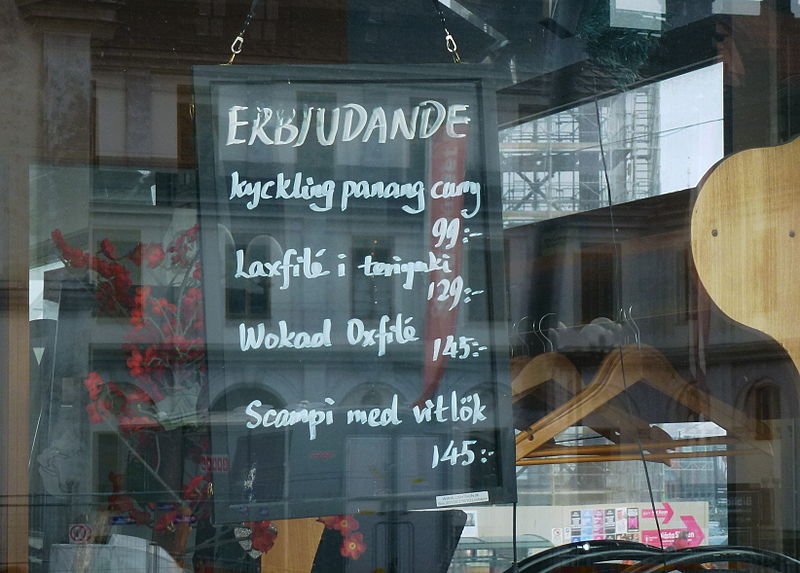 ERBJUDANDE
kyckling panang curry
99:-
Laxfilé i teriyaki
129:-
Wokad Oxfilé
145:-
Scampi med vitlök
145:-